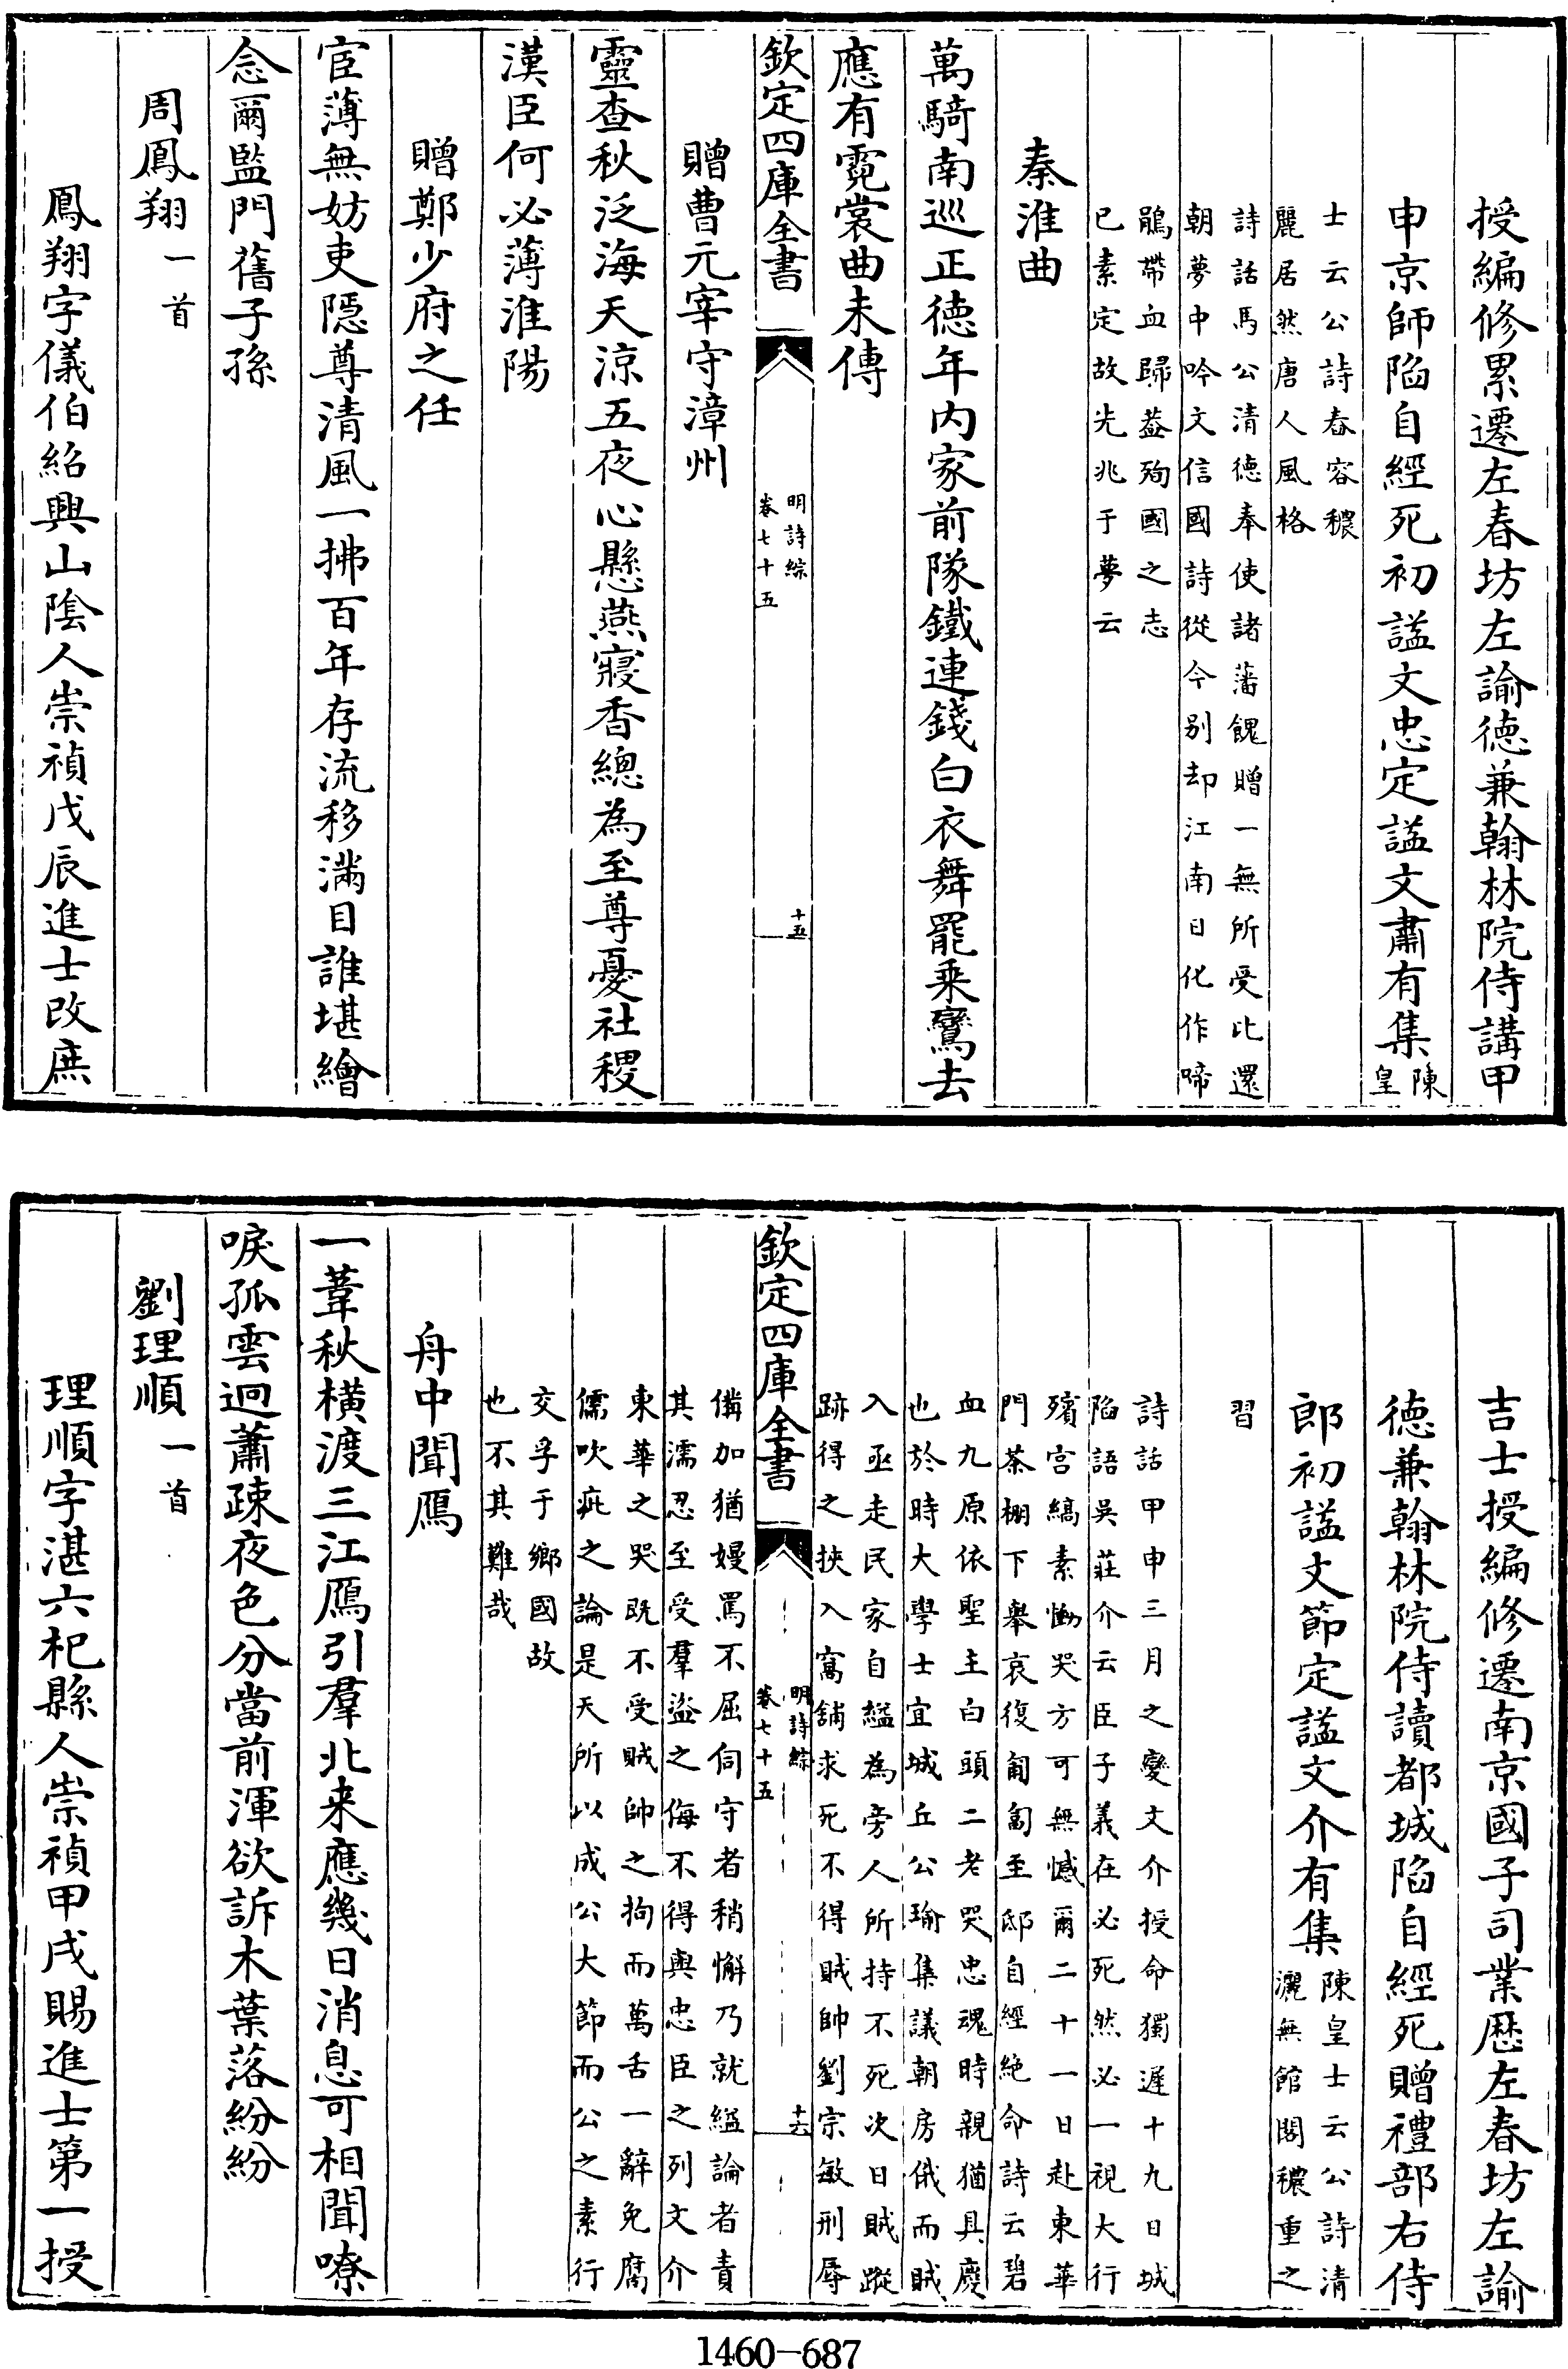 授編修累遷左春坊左諭德兼翰林院侍講甲
申京師陷自經死初諡文忠定諡文肅有集陳皇
士云公詩春容穠
麗居然唐人風格
詩話馬公清德奉使諸藩餽贈一無所受比還
朝夢中吟文信國詩從今別却江南日化作啼
鵑帶血歸葢殉國之志
已素定故先兆于夢云
秦淮曲
萬騎南巡正德年内家前隊鐵連錢白衣舞罷乗鸞去
應有霓裳曲未傳
欽定四庫全書
明詩綜
卷七十五
十五
贈曹元宰守漳州
靈查秋泛海天涼五夜心懸燕寢香總為至尊憂社稷
漢臣何必薄淮陽
贈鄭少府之任
宦薄無妨吏隱尊清風一拂百年存流移滿目誰堪繪
念爾監門舊子孫
周鳳翔一首
鳳翔字儀伯紹興山陰人崇禎戊辰進士改庶
吉士授編修遷南京國子司業歷左春坊左諭
德兼翰林院侍讀都城陷自經死贈禮部右侍
郎初諡文節定諡文介有集
陳皇士云公詩清
灑無館閣穠重之
習
詩話甲申三月之變文介授命獨遲十九日城
陷語吳莊介云臣子義在必死然必一視大行
殯宫縞素慟哭方可無憾爾二十一日赴東華
門茶棚下舉哀復匍匐至邸自經絶命詩云碧
血九原依聖主白頭二老哭忠魂時親猶具慶
也於時大學士宜城丘公瑜集議朝房俄而賊
入亟走民家自縊為旁人所持不死次日賊蹤
跡得之挾入窩舖求死不得賊帥劉宗敏刑辱
欽定四庫全書
明詩綜
卷七十五
十六
備加猶嫚罵不屈伺守者稍懈乃就縊論者責
其濡忍至受羣盜之侮不得與忠臣之列文介
東華之哭既不受賊帥之拘而萬舌一辭免腐
儒吹疵之論是天所以成公大節而公之素行
交孚于鄉國故
也不其難哉
舟中聞鴈
一葦秋横渡三江鴈引羣北来應幾日消息可相聞嘹
唳孤雲迥蕭疎夜色分當前渾欲訴木葉落紛紛
劉理順一首
理順字湛六杞縣人崇禎甲戌賜進士第一授
1460-687